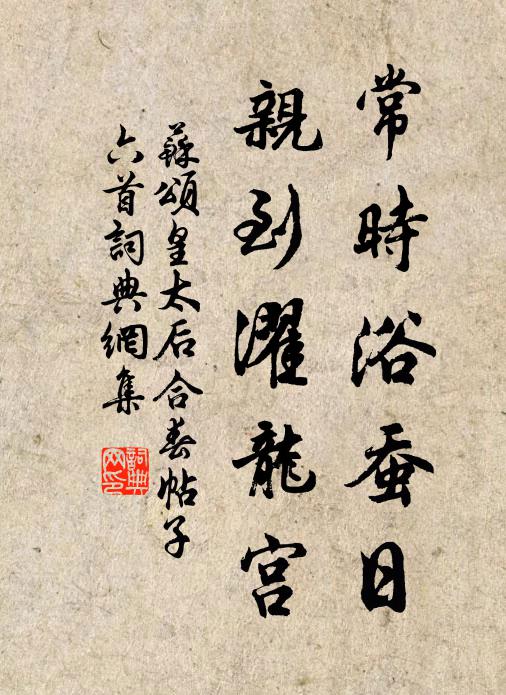 常時浴蚕日
親到濯龍宫
蘇頌皇太后合春帖子
六首詞典網集
詞典
网印